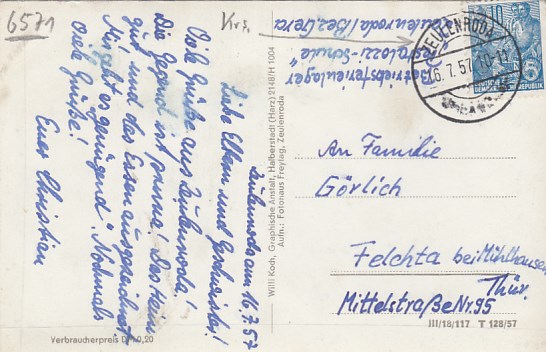 6571
Krs.
Betriebsferienlager
"Pestalozzi-Schule"
Zeulenroda/Bez. Gera
ZEULENRODA
16.7.57
10
Zeulenroda am 16.7.57
Liebe Eltern und Geschwister!
Viele Grüße aus Zeulenroda!
Die Gegend ist prima. Das Heim
gut und das Essen ausgezeichnet
Mir geht es
Nochmals
Viele Grüße!
Euer Christian
Willi Koch, Graphische Anstalt, Halberstadt (Harz) 2148/H 1004
Aufn.: Fotohaus Freytag, Zeulenroda
An Familie
Görlich
Felchta bei Mühlhausen
Thür.
Mittelstraße Nr. 95
III/18/117 T 128/57
Verbraucherpreis 0,20